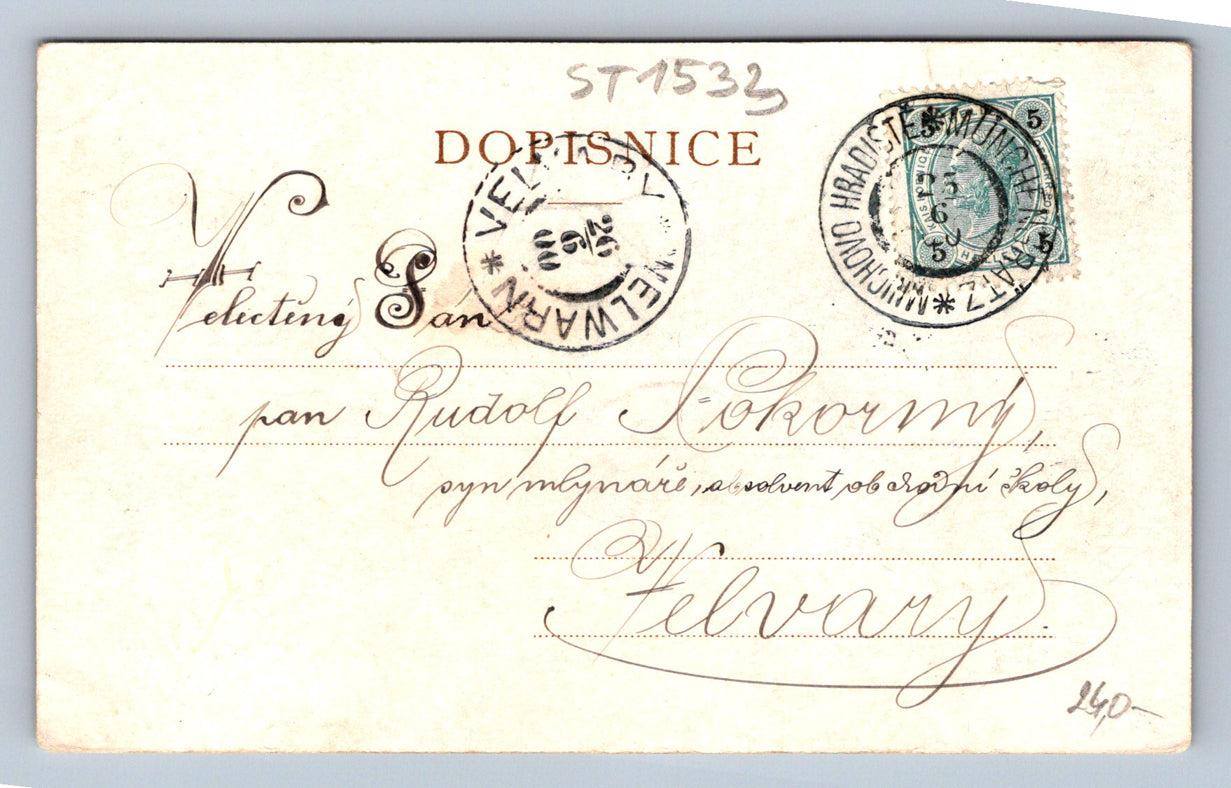 ST1532
DOPISNICE
VELVARY * WELWARN *
26/6 00
MNICHOVO HRADIŠTĚ * MÜNCHENGRATZ *
5 5 5 5
Velectěný Pán
pan Rudolf Pokorný,
syn mlynáře, absolvent obchodní školy,
Velvary.
24,0-